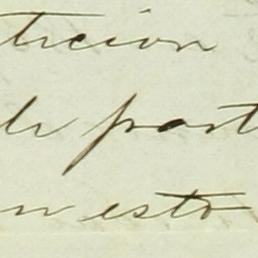 ticion
de part
n esto